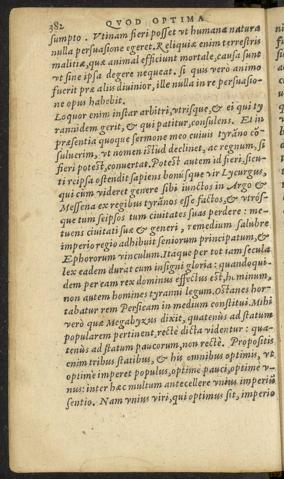 382 QVOD OPTIMA
sumpto. Vtinam fieri posset vt humana natura
nulla persuasione egeret. Reliquiæ enim terrestris
malitiæ, quæ animal efficiunt mortale, causa sunt
vt sine ipsa degere nequeat. Si quis verò animo
fuerit præ aliis diuinior, ille nulla in re persuasio-
ne opus habebit.
Loquor enim instar arbitri, vtrisque, & ei qui ty
rannidem gerit, & qui patitur, consulens. Et in
præsentia quoque sermone meo cuiuis tyrãno cõ-
suluerim, vt nomen istiud declinet, ac regnum, si
fieri potest, conuertat. Potest autem id fieri, sicu-
ti reipsa ostendit sapiens bonúsque vir Lycurgus,
qui cùm videret genere sibi iunctos in Argo &
Messena ex regibus tyrãnos esse factos, & vtrós-
que tum seipsos tum ciuitates suas perdere: me-
tuens ciuitati suæ & generi, remedium salubre
imperio regio adhibuit seniorum principatum, &
Ephororum vinculum. Itaque per tot iam secula
lex eadem durat cum insigni gloria: quandoqui-
dem per eam rex dominus effectus est hominum,
non autem homines tyranni legum. Ostanes hor-
tabatur rem Persicam in medium constitui. Mihi
verò quæ Megabyzus dixit, quatenùs ad statum
popularem pertinent, rectè dicta videntur: qua-
tenùs ad statum paucorum, non rectè. Propositis
enim tribus statibus, & his omnibus optimis, vt
optimè imperet populus, optimè pauci, optimè v-
nus: inter hæc multum antecellere vnius imperiũ
sentio. Nam vnius viri, qui optimus sit, imperio